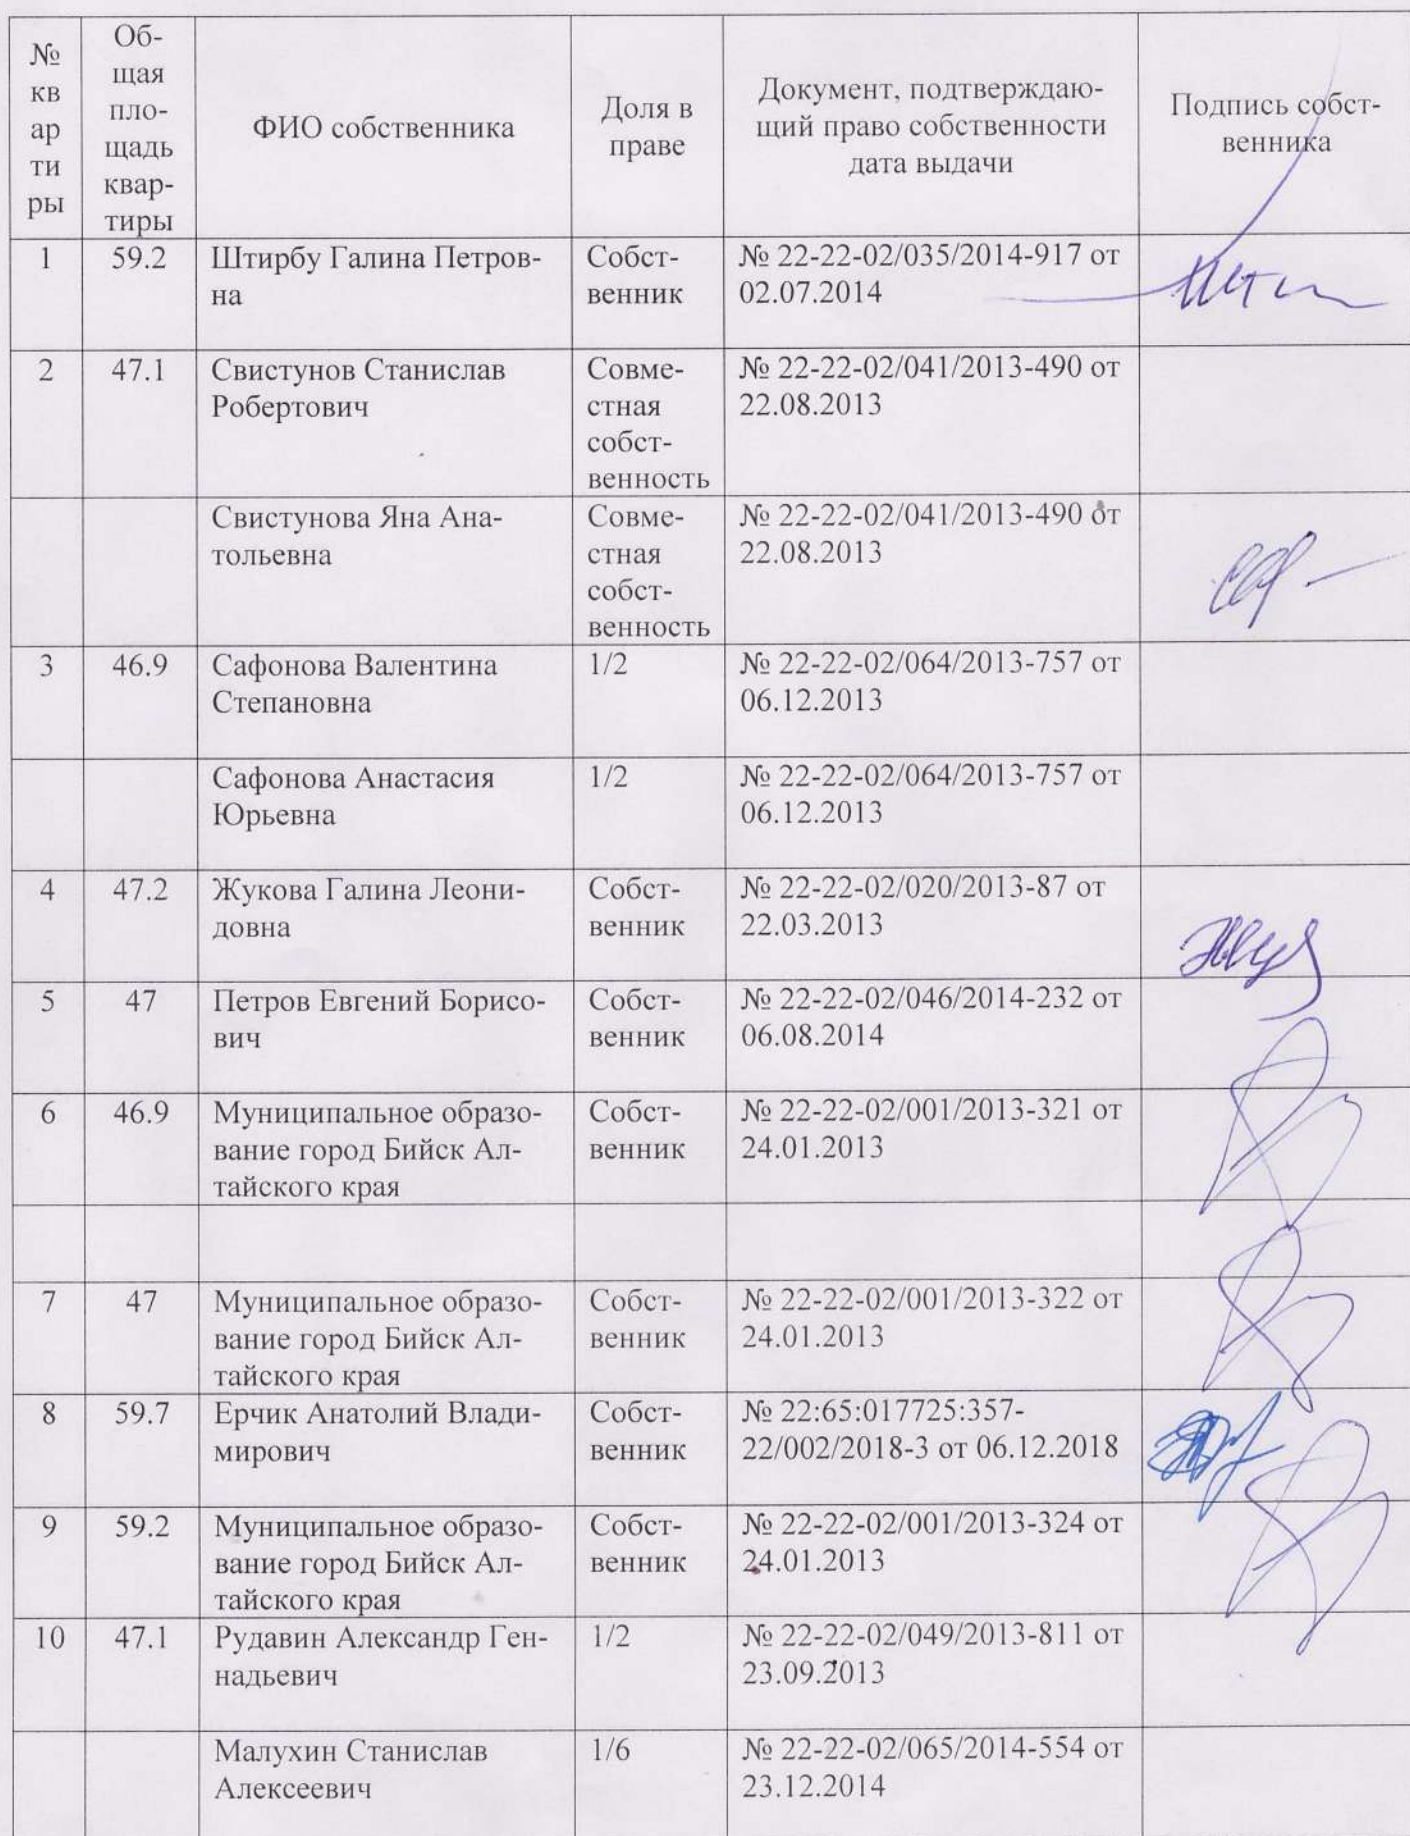 №
кв
ар
ти
ры
Об-
щая
пло-
щадь
квар-
тиры
ФИО собственника
Доля в
праве
Документ, подтверждаю-
щий право собственности
дата выдачи
Подпись собст-
венника
1
59.2
Штирбу Галина Петров-
на
Собст-
венник
№ 22-22-02/035/2014-917 от
02.07.2014
2
47.1
Свистунов Станислав
Робертович
Совме-
стная
собст-
венность
№ 22-22-02/041/2013-490 от
22.08.2013
Свистунова Яна Ана-
тольевна
Совме-
стная
собст-
венность
№ 22-22-02/041/2013-490 от
22.08.2013
3
46.9
Сафонова Валентина
Степановна
1/2
№ 22-22-02/064/2013-757 от
06.12.2013
Сафонова Анастасия
Юрьевна
1/2
№ 22-22-02/064/2013-757 от
06.12.2013
4
47.2
Жукова Галина Леони-
довна
Собст-
венник
№ 22-22-02/020/2013-87 от
22.03.2013
5
47
Петров Евгений Борисо-
вич
Собст-
венник
№ 22-22-02/046/2014-232 от
06.08.2014
6
46.9
Муниципальное образо-
вание город Бийск Ал-
тайского края
Собст-
венник
№ 22-22-02/001/2013-321 от
24.01.2013
7
47
Муниципальное образо-
вание город Бийск Ал-
тайского края
Собст-
венник
№ 22-22-02/001/2013-322 от
24.01.2013
8
59.7
Ерчик Анатолий Влади-
мирович
Собст-
венник
№ 22:65:017725:357-
22/002/2018-3 от 06.12.2018
9
59.2
Муниципальное образо-
вание город Бийск Ал-
тайского края
Собст-
венник
№ 22-22-02/001/2013-324 от
24.01.2013
10
47.1
Рудавин Александр Ген-
надьевич
1/2
№ 22-22-02/049/2013-811 от
23.09.2013
Малухин Станислав
Алексеевич
1/6
№ 22-22-02/065/2014-554 от
23.12.2014